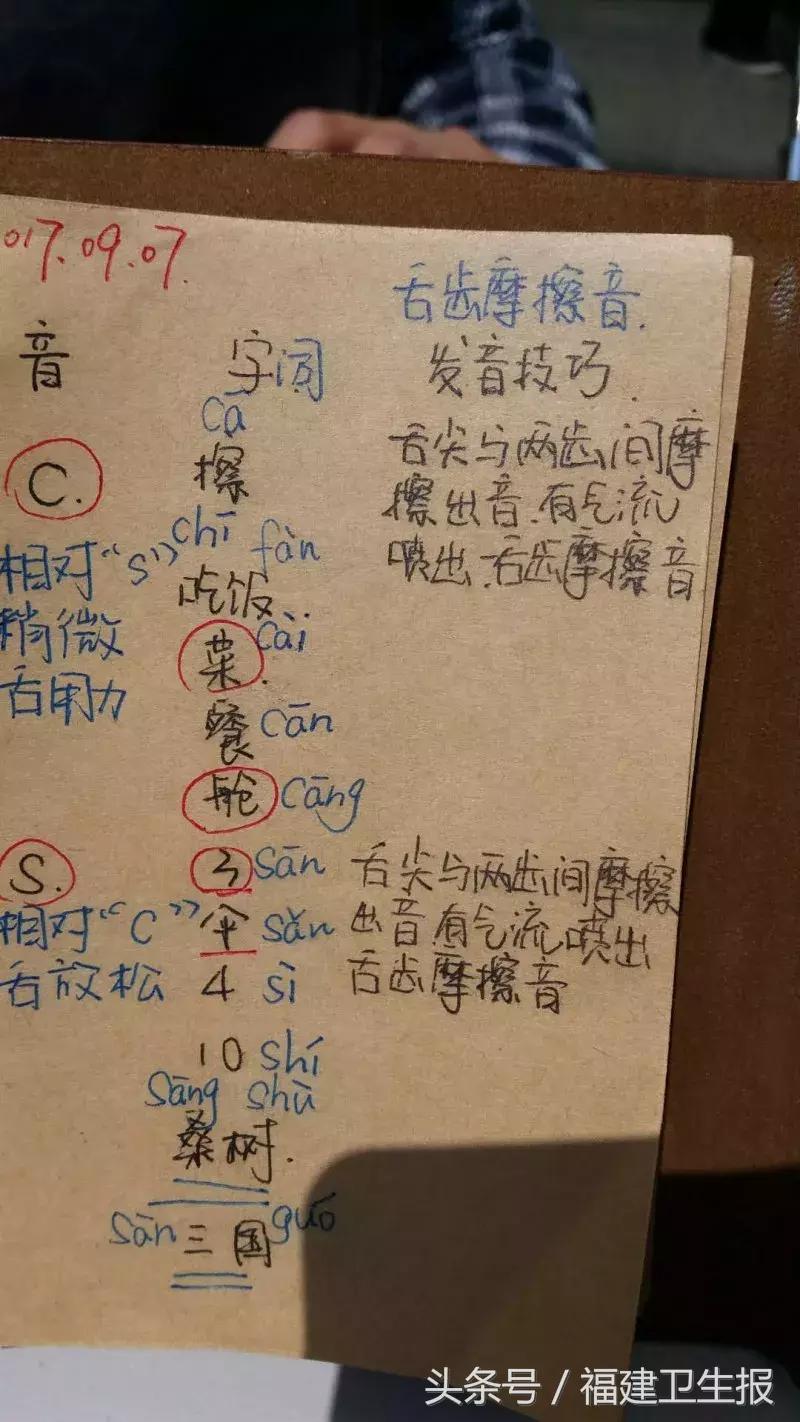 017.09.07.
舌齿摩擦音.
音 字词 发音技巧.
cā
C. 擦
舌尖与两齿间摩
擦出音.有气流
喷出.舌齿摩擦音
相对“s”
稍微
舌用力
chī fàn
吃饭
菜. cài
餐 cān
舱 cāng
S. 3 sān
相对“C”
舌放松
伞 sǎn
4 sì
舌尖与两齿间摩擦
出音.有气流喷出
舌齿摩擦音
10 shí
sāng shù
桑树.
sān guó
三国
头条号 / 福建卫生报